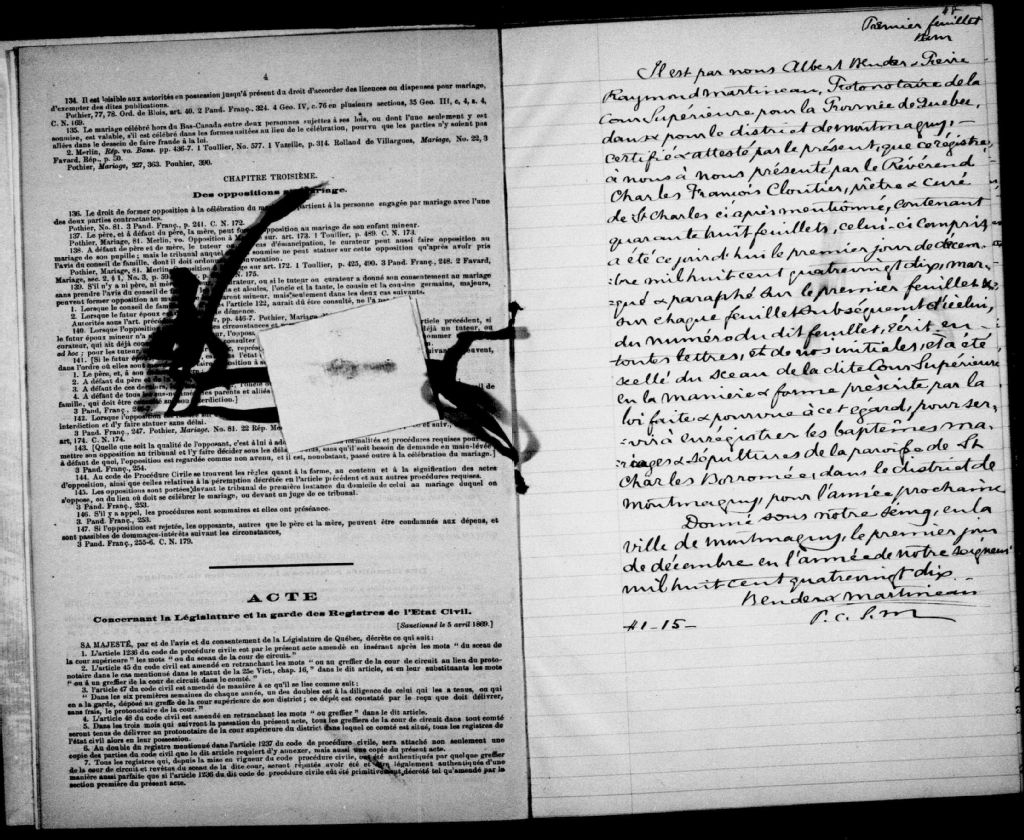 4
134. Il est loisible aux autorités en possession jusqu'à présent du droit d'accorder des licences ou dispenses pour mariage,
d'exempter des dites publications.
Pothier, 77, 78. Ord. de Blois, art. 40. 2 Pand. Franç., 324. 4 Geo. IV, c. 76 en plusieurs sections, 35 Geo. III, c. 4, s. 4,
C. N. 169.
135. Le mariage célébré hors du Bas-Canada entre deux personnes sujettes à ses lois, ou dont l'une seulement y est
soumise, est valable, s'il est célébré dans les formes usitées au lieu de la célébration, pourvu que les parties n'y soient pas
allées dans le dessein de faire fraude à la loi.
2 Merlin, Rép. vo. Bans. pp. 436-7. 1 Toullier, No. 577. 1 Vazeille, p. 314. Rolland de Villargues, Mariage, No. 22, 3
Favard, Rép., p. 50.
Pothier, Mariage, 327, 363. Pouhier, 390.
CHAPITRE TROISIÈME.
Des oppositions mariage.
136. Le droit de former opposition à la célébration du partient à la personne engagée par mariage avec l'une
des deux parties contractantes.
Pothier, No. 81. 3 Pand. Franç., p. 241. C. N. 172.
137. Le père, et à défaut du père, la mère, peut opposition au mariage de son enfant mineur.
Pothier, Mariage, 81. Merlin, vo. Opposition à sur. art. 173. 1 Toullier, p. 489. C. N. 173.
138. A défaut de père et de mère, le tuteur cas d'émancipation, le curateur peut aussi faire opposition au
mariage de son pupille; mais le tribunal auquel soumise ne peut statuer sur cette opposition qu'après avoir pris
l'avis du conseil de famille, dont il doit ordon vocation.
Pothier, Mariage, 81. Merlin, position sur art. 172. 1 Toullier, p. 425, 490. 3 Pand. Franç., 248. 2 Favard,
Mariage, sec. 2, § 1, No. 3, p. 59 p. 175.
139. S'il n'y a ni père, ni mè curateur, ou si le tuteur ou curateur a donné son consentement au mariage
sans prendre l'avis du conseil de aïeules, l'oncle et la tante, le cousin et la cousine germains, majeurs,
peuvent former opposition au ment mineur, mais seulement dans les deux cas suivants.
1. Lorsque le conseil de fam l'article 122, aurait dû être consulté, ne l'a
2. Lorsque le futur époux démence.
Autorités sous l'art. préc pp. 446-7. Pothier, Mariage
140. Lorsque l'opposition circonstances et article précédent, si
le futur époux mineur n'a l'oppos déjà un tuteur, ou
curateur, qui ait déjà consulter
ad hoc; pour les tuteur,
141. [Si le futur ép
dans l'ordre où elles sont
1. Le père, et, à son
2. A défaut du père
3. A défaut de ces
4. A défaut de tous parents et alliés
famille, qui doit être interdiction.]
3 Pand. Franç.,
142. Lorsque l'opposi
interdiction et d'y faire statuer sans délai.
3 Pand. Franç., 247. Pothier, Mariage. No. 81. 22 Rép.
art, 174. C. N. 174.
143. [Quelle que soit la qualité de l'opposant, c'est à lui à formalités et procédures requises pour
mettre son opposition au tribunal et l'y faire décider sous les dé sans qu'il soit besoin de demande en main-levée;
à défaut de quoi, l'opposition est regardée comme non avenu, et il est, nonobstant, passé outre à la célébration du mariage.]
3 Pand. Franç., 254.
144. Au code de Procédure Civile se trouvent les règles quant à la forme, au contenu et à la signification des actes
d'opposition, ainsi que celles relatives à la péremption décrétée en l'article précédent et aux autres procédures requises.
145. Les oppositions sont portées devant le tribunal de première instance du domicile de celui au mariage duquel on
s'oppose, ou du lieu où doit se célébrer le mariage, ou devant un juge de ce tribunal.
3 Pand. Franç., 253.
146. S'il y a appel, les procédures sont sommaires et elles ont préséance.
3. Pand. Franç., 253.
147. Si l'opposition est rejetée, les opposants, autres que le père et la mère, peuvent être condamnés aux dépens, et
sont passibles de dommages-intérêts suivant les circonstances,
3 Pand. Franç., 255-6. C. N. 179.
ACTE
Concernant la Législature et la garde des Registres de l'Etat Civil.
[Sanctionné le 5 avril 1869.]
SA MAJESTÉ, par et de l'avis et du consentement de la Législature de Québec, décrète ce qui suit:
1. L'article 1236 du code de procédure civile est par le présent acte amendé en insérant après les mots " du sceau de
la cour supérieure " les mots " ou du sceau de la cour de circuit."
2. L'article 45 du code civil est amendé en retranchant les mots " ou au greffier de la cour de circuit au lieu du proto-
notaire dans le cas mentionné dans le statut de la 25e Vict., chap. 16, " dans le dit article, et en leur substituants les mots
" ou à un greffier de la cour de circuit dans le comté. "
3. l'article 47 du code civil est amendé de manière à ce qu'il se lise comme suit:
" Dans les six premières semaines de chaque année, un des doubles est à la diligence de celui qui les a tenus, ou qui
en a la garde, déposé au greffe de la cour supérieure de son district; ce dépôt est constaté par le reçu que doit délivrer,
sans frais, le protonotaire de la cour."
4. L'article 48 du code civil est amendé en retranchant les mots " ou greffier " dans le dit article.
5. Dans les trois mois qui suivront la passation du présent acte, tous les greffiers de la cour de circuit dans tout comté
seront tenus de délivrer au protonotaire de la cour supérieure du district dans lequel ce comté est situé, tous les registres de
l'état civil alors en leur possession.
6. Au double du registre mentionné dans l'article 1237 du code de procédure civile, sera attaché non seulement une
copie des parties du code civil que le dit article requiert d'y annexer, mais aussi une copie du présent acte.
7. Tous les registres qui, depuis la mise en vigueur du code procédure civile, ont été authentiqués par quelque greffier
de la cour de circuit et revêtus du sceau de la dite cour, seront réputés avoir été et être légalement authentiqués d'une
manière aussi parfaite que si l'article 1236 du dit code de procédure civile eût été primitivement décrété tel qu'amendé par la
section première du présent acte.
48
Premier feuillet
B&m
Il est par nous Albert Bender & Pierre
Raymond Martineau, Protonotaire de la
Cour Supérieure pour la Province de Quebec,
dans & pour le district de Montmagny, —
certifié & attesté par le présent, que ce régistre
à nous à nous présenté par le Révérend
Charles François Cloutier, prêtre & curé
de St Charles ci après mentionné, contenant
quarante huit feuillets, celui-ci compris
a été ce jour d'hui le premier jour de décem-
-bre mil huit cent quatrevingt dix, mar-
qué & paraphé sur le premier feuillet &
sur chaque feuillet subséquent d'icelui,
du numéro du dit feuillet, écrit en -
toutes lettres, et de nos initiales, et a été
scellé du sceau de la dite Cour Supérieure
en la manière & forme prescrite par la
loi faite & pourvue à cet égard, pour ser-
-vir à enrégistrer les baptêmes ma-
-riages & sépultures de la paroisse de St
Charles Borromée, dans le district de
Montmagny, pour l'année prochaine
Donné sous notre seing, en la
ville de Montmagny, le premier jour
de décembre en l'année de notre Seigneur
mil huit cent quatrevingt dix.
Bender & Martineau
P. C. S. M
#1-15-